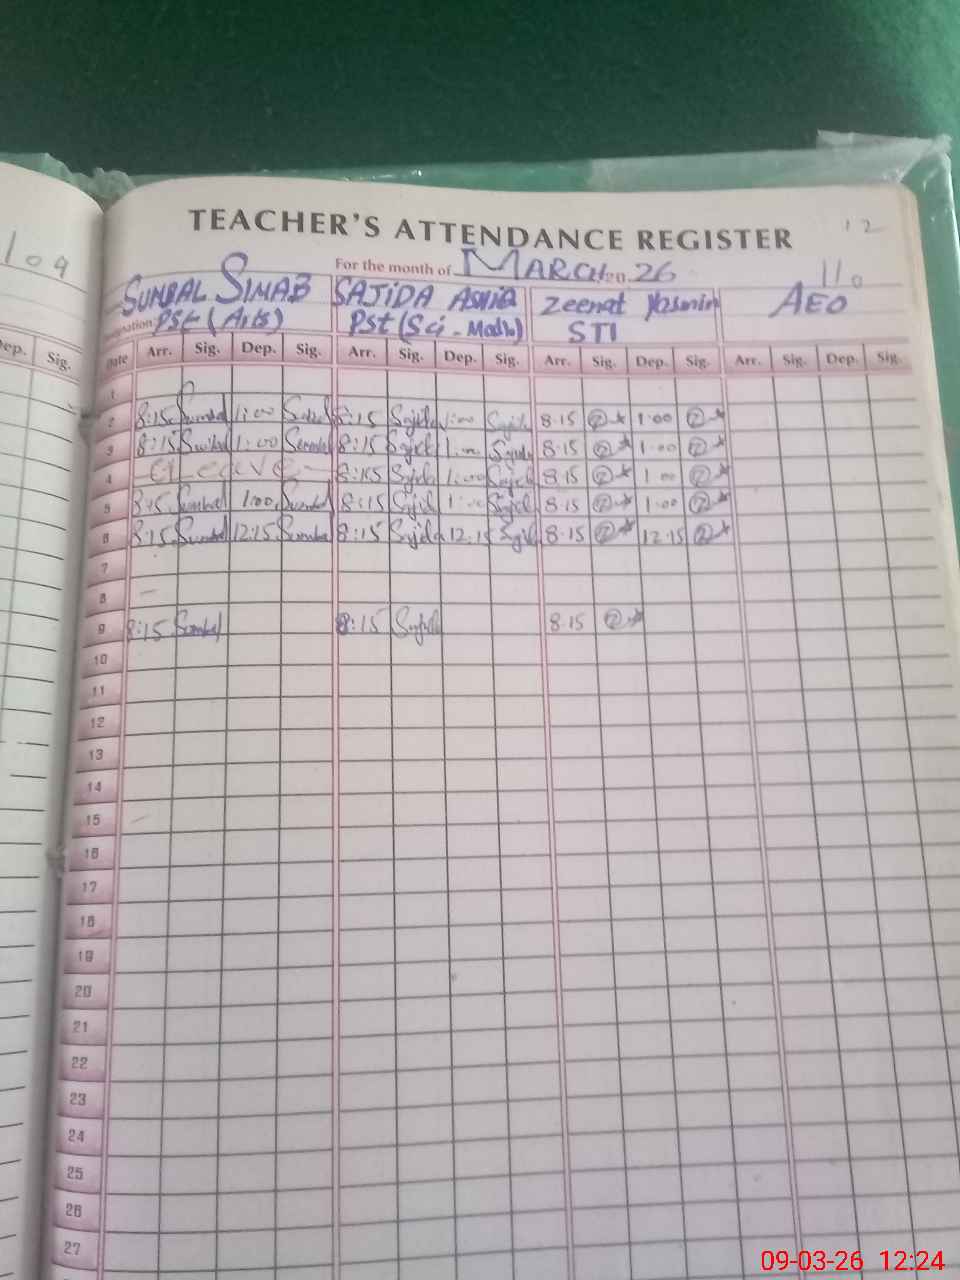 109
TEACHER'S ATTENDANCE REGISTER
12
For the month of MARCH 20 26
110
SUMBAL SIMAB SAJIDA ASHIQ Zeenat Yasmin AEO
PSt (Arts) PSt (Sci-Math) STI
Dep. Sig.
Date Arr. Sig. Dep. Sig. Arr. Sig. Dep. Sig. Arr. Sig. Dep. Sig. Arr. Sig. Dep. Sig.
1
2 8:15 Sumbal 1:00 Sumbal 8:15 Sajida 1:00 Sajida 8.15 1.00
3 8:15 Sumbal 1:00 Sumbal 8:15 Sajida 1:00 Sajida 8.15 1.00
4 Leave 8:15 Sajida 1:00 Sajida 8.15 1.00
5 8:15 Sumbal 1:00 Sumbal 8:15 Sajida 1:00 Sajida 8.15 1.00
6 8:15 Sumbal 12:15 Sumbal 8:15 Sajida 12.15 Sajida 8.15 12.15
7
8 —
9 8:15 Sumbal 8:15 Sajida 8.15
10
11
12
13
14
15 —
16
17
18
19
20
21
22
23
24
25
26
27
09-03-26 12:24